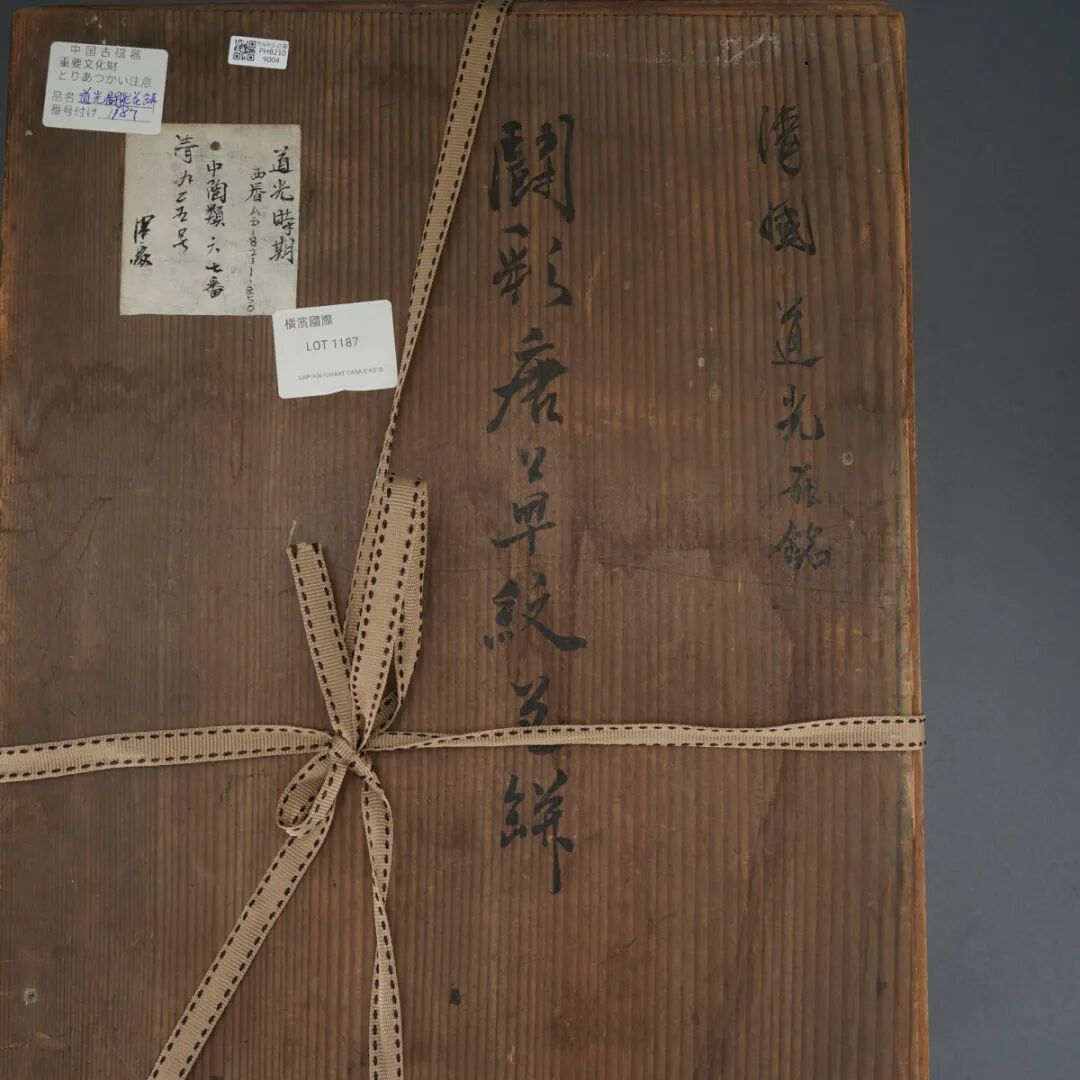 中国古磁器
重要文化財
とりあつかい注意
品名 道光鬪彩花缾
番号付け 1187
PHB210
9004
道光時期
西暦AD-1821-1850
中陶類 六七番
清九二五号
橫濱國際
LOT 1187
CAPITOLIUM ART CASA D'ASTE
清國 道光 銘
鬪彩唐草紋花缾